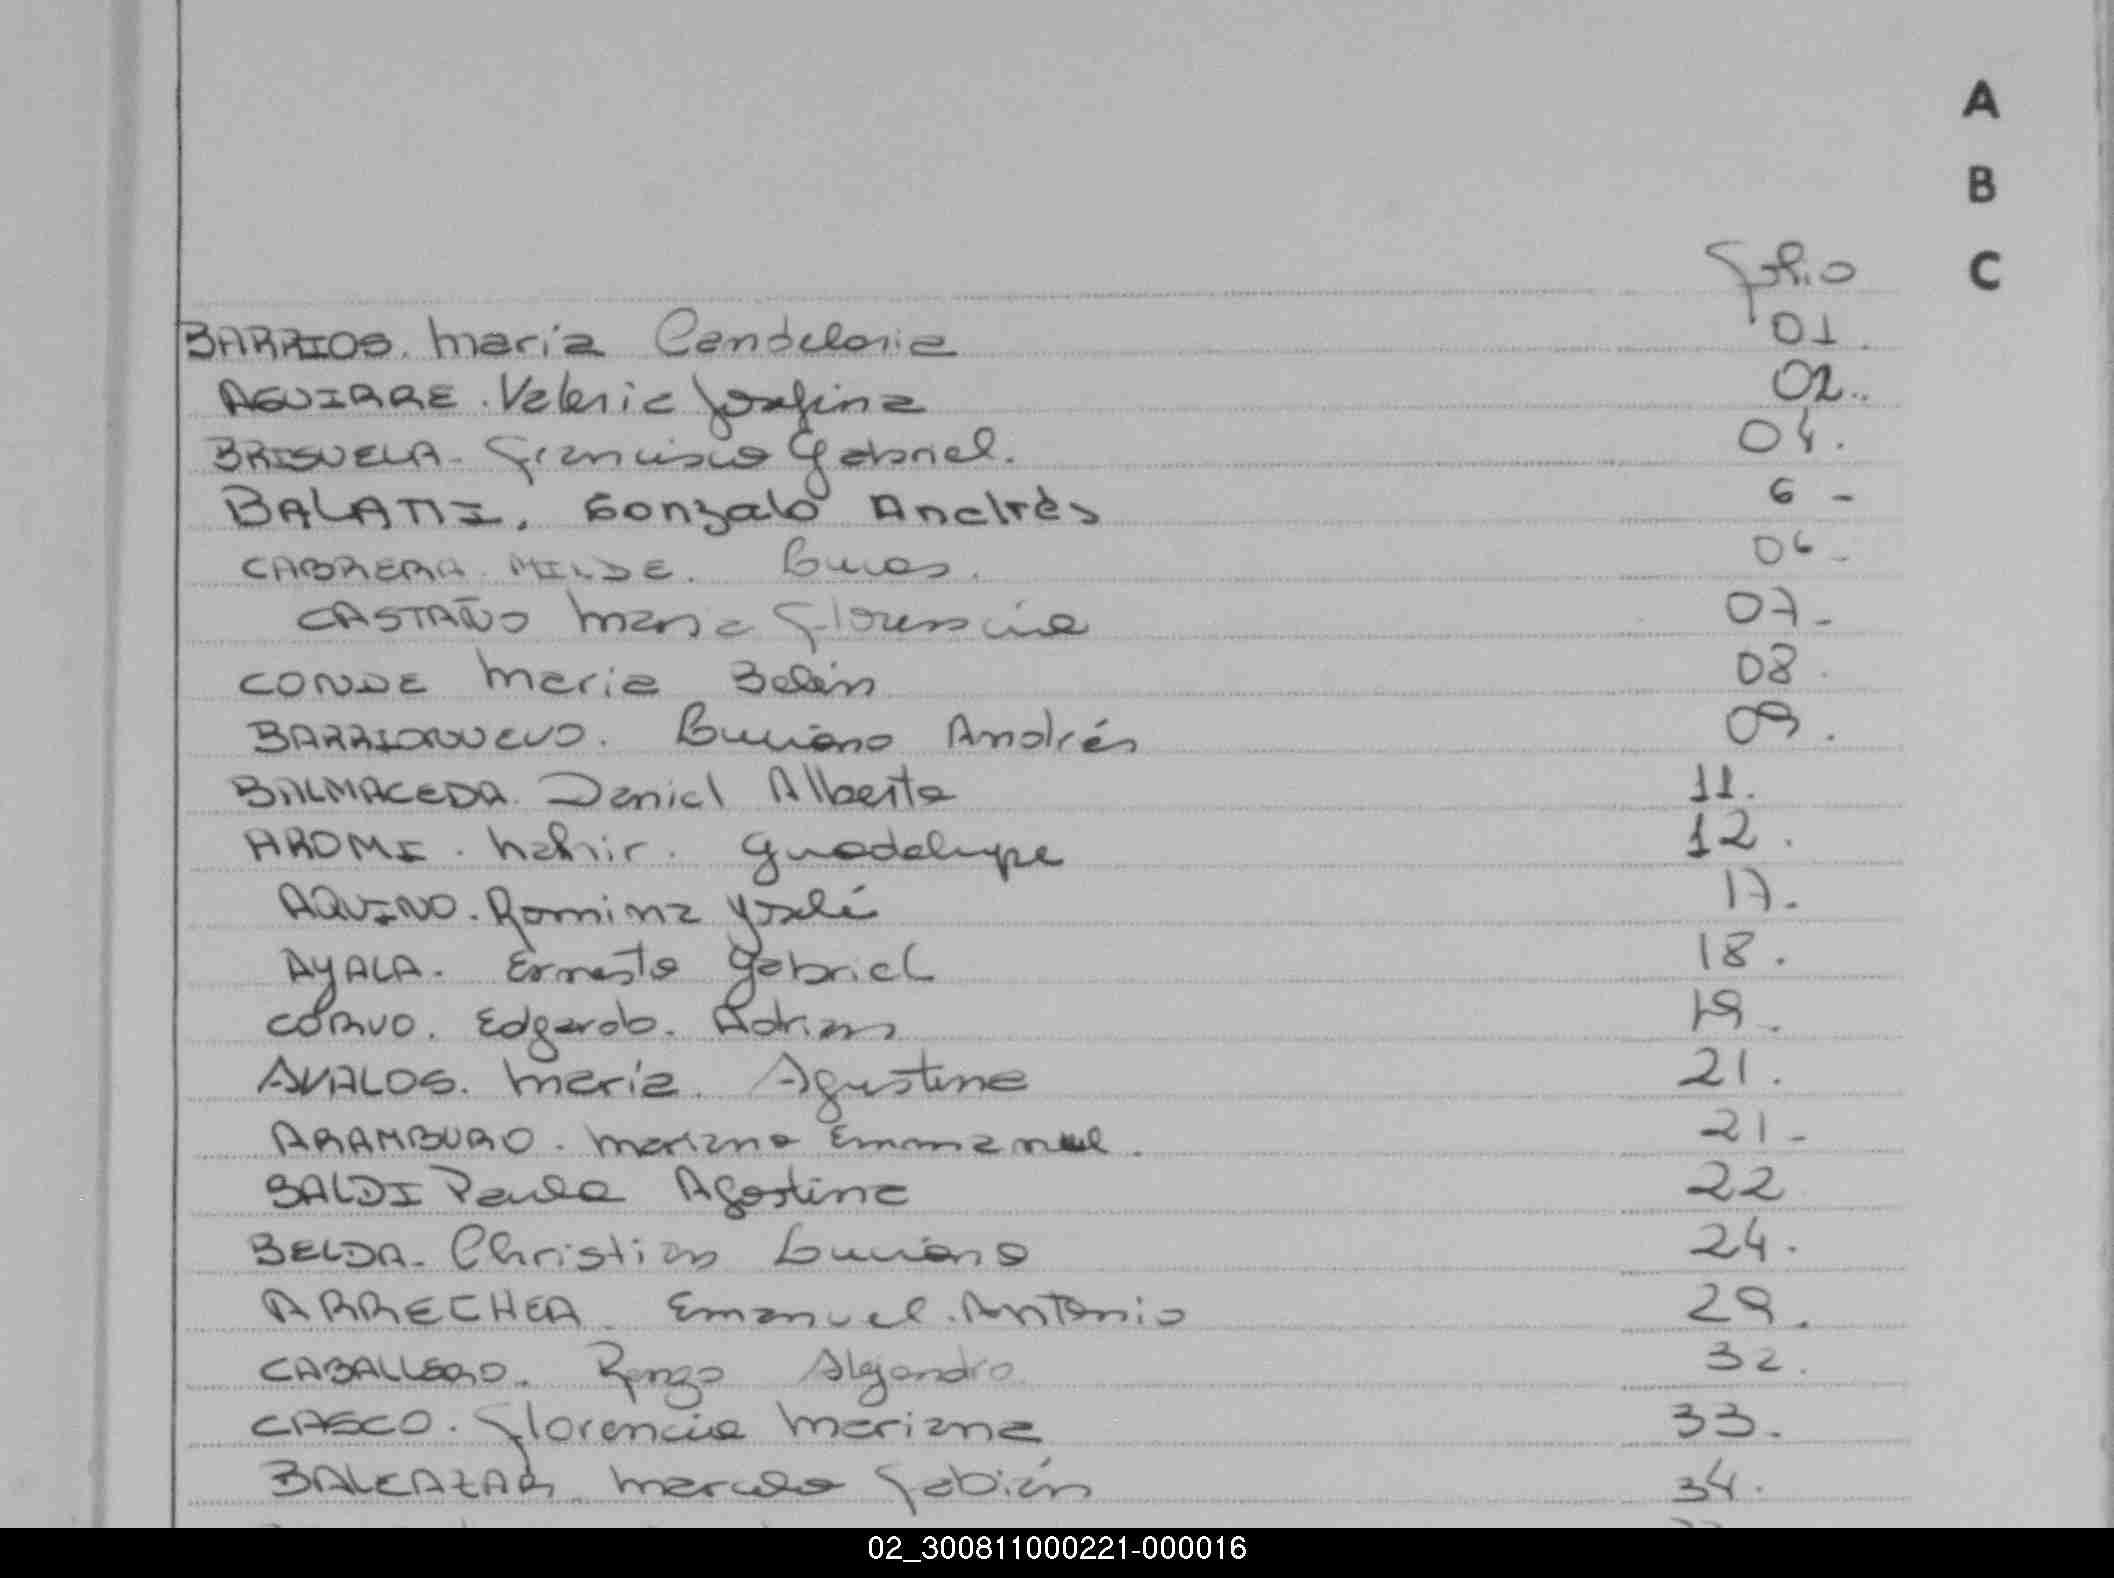 A
B
Folio C
BARRIOS. María Candelaria 01.
AGUIRRE. Valeria Josefina 02..
BRISUELA. Francisco Gabriel. 04.
BALATTI, Gonzalo Andrès 6 -
CABRERA MILDE. Lucas. 06-
CASTAÑO Maria Florencia 07-
CONDE Maria Belén 08.
BARRIONUEVO. Luciano Andrés 09.
BALMACEDA. Daniel Alberto 11.
AROMI. Nahir. Guadalupe 12.
AQUINO. Romina 17.
AYALA. Ernesto Gabriel 18.
CORVO. Edgardo. Adrian 19.
AVALOS. María. Agustina 21.
ARAMBURO. Mariano Emmanuel. 21-
BALDI Paula Agostina 22
BELDA. Christian Luciano 24.
ARRECHEA. Emanuel. Antonio 29.
CABALLERO. Renzo Alejandro 32.
CASCO. Florencia Mariana 33.
BALCAZAR. Marcelo Fabián 34.
02_300811000221-000016